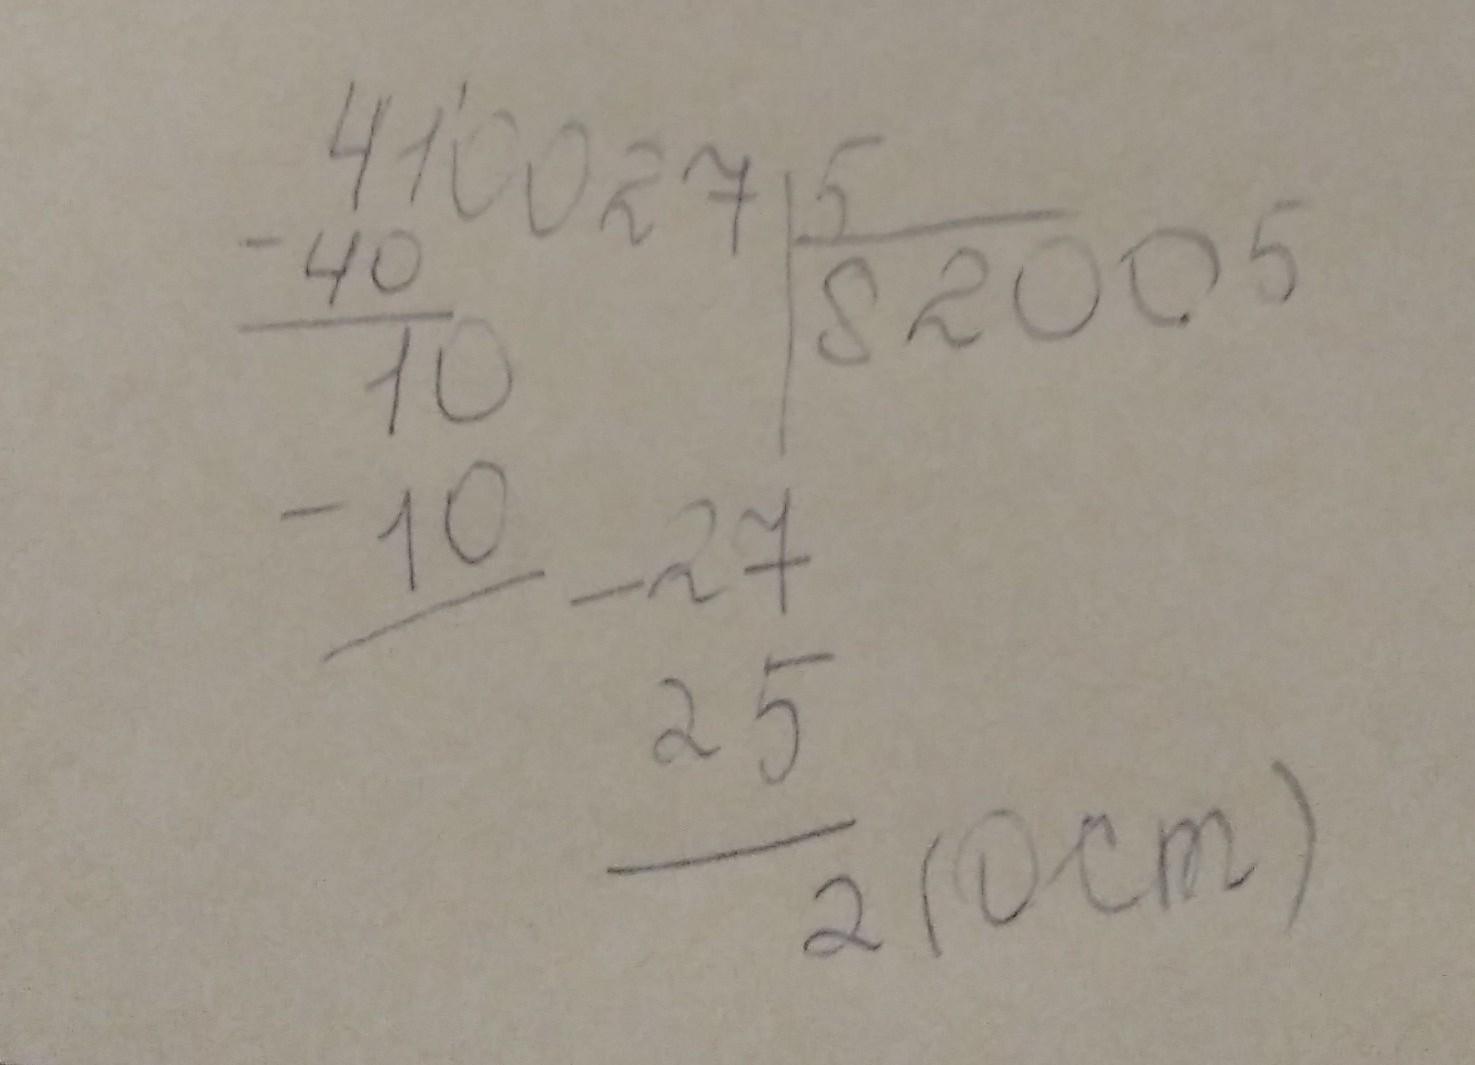 410027 5
-40 82005
10
-10 -27
25
2 (Ост)